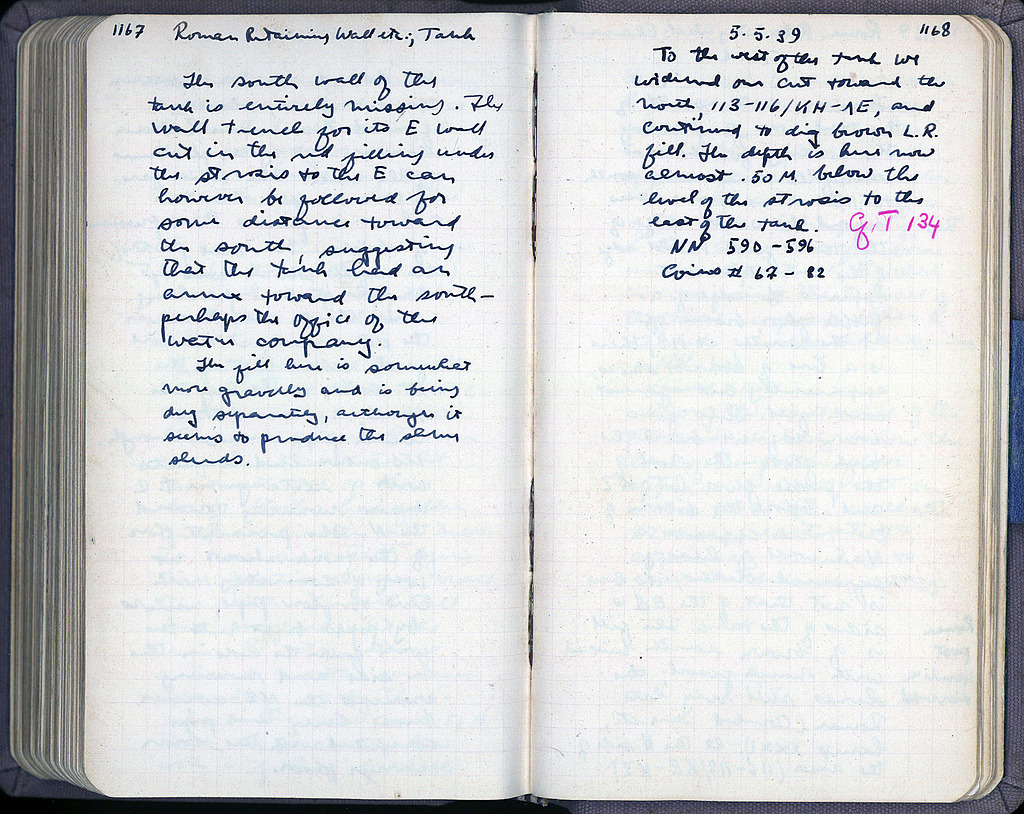 1167 Roman Retaining Wall etc.; Tank
The south wall of the
tank is entirely missing. The
wall trench for its E wall
cut in the red filling under
the strosis to the E can
however be followed for
some distance toward
the south, suggesting
that the tank had an
annex toward the south –
perhaps the office of the
water company.
The fill here is somewhat
more gravelly and is being
dug separately, although it
seems to produce the same
sherds.
5.5.39 1168
To the west of the tank we
widened our cut toward the
north, 113-116/ΚΗ-ΛΕ, and
continued to dig brown L.R.
fill. The depth is here now
almost .50 M. below the
level of the strosis to the
east of the tank. G.T 134
NN 590-596
Coins # 67-82